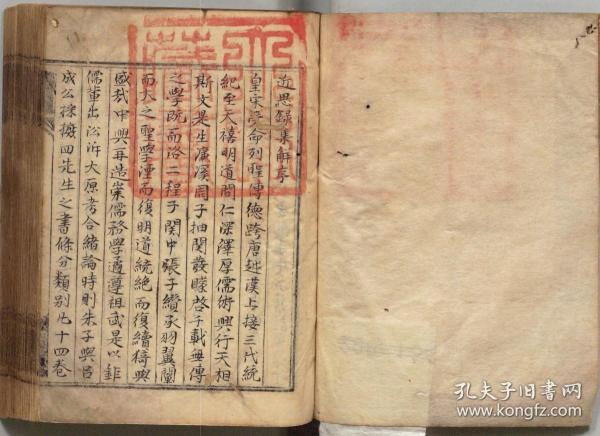 近思錄集解序
皇宋受命列聖傳德跨唐越漢上接三代統
紀至天禧明道間仁深澤厚儒術興行天相
斯文是生濂溪周子抽關發矇啓千載無傳
之學既而洛二程子關中張子纘承羽翼闡
而大之聖學湮而復明道統絕而復續猗與
盛哉中興再造崇儒務學遹遵祖武是以鉅
儒輩出沿泝大原考合緒論時則朱子與呂
成公採摭四先生之書條分類別凡十四卷
孔夫子旧书网
www.kongfz.com